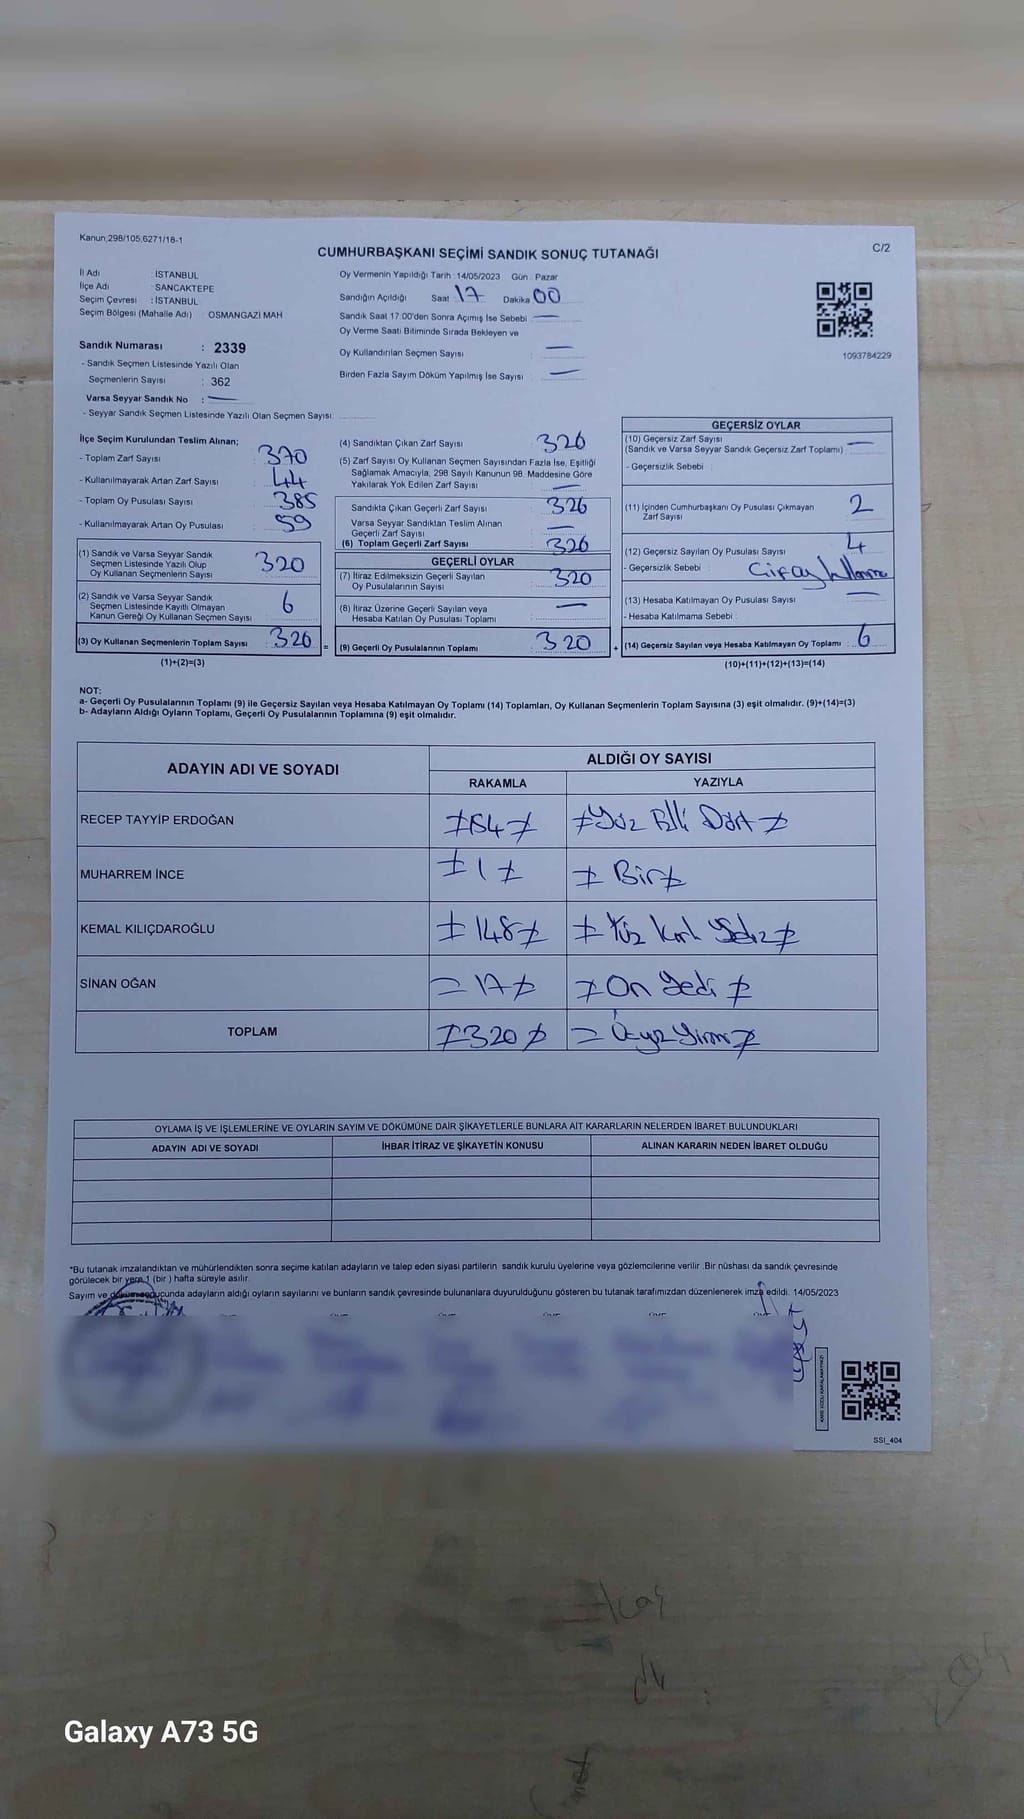 Kanun;298/105;6271/18-1
C/2
CUMHURBAŞKANI SEÇİMİ SANDIK SONUÇ TUTANAĞI
İl Adı İSTANBUL
İlçe Adı : SANCAKTEPE
Seçim Çevresi : İSTANBUL
Seçim Bölgesi (Mahalle Adı) OSMANGAZİ MAH
Oy Vermenin Yapıldığı Tarih :14/05/2023 Gün : Pazar
Sandığın Açıldığı Saat 17 Dakika 00
Sandık Saat 17:00'den Sonra Açımış İse Sebebi —
Oy Verme Saati Bitiminde Sırada Bekleyen ve
Oy Kullandırılan Seçmen Sayısı —
Birden Fazla Sayım Döküm Yapılmış İse Sayısı —
1093784229
Sandık Numarası : 2339
- Sandık Seçmen Listesinde Yazılı Olan
Seçmenlerin Sayısı : 362
Varsa Seyyar Sandık No : —
- Seyyar Sandık Seçmen Listesinde Yazılı Olan Seçmen Sayısı:
İlçe Seçim Kurulundan Teslim Alınan;
- Toplam Zarf Sayısı 370
- Kullanılmayarak Artan Zarf Sayısı 44
- Toplam Oy Pusulası Sayısı 385
- Kullanılmayarak Artan Oy Pusulası 59
(1) Sandık ve Varsa Seyyar Sandık
Seçmen Listesinde Yazılı Olup
Oy Kullanan Seçmenlerin Sayısı 320
(2) Sandık ve Varsa Seyyar Sandık
Seçmen Listesinde Kayıtlı Olmayan
Kanun Gereği Oy Kullanan Seçmen Sayısı 6
(3) Oy Kullanan Seçmenlerin Toplam Sayısı 326 =
(1)+(2)=(3)
(4) Sandıktan Çıkan Zarf Sayısı 326
(5) Zarf Sayısı Oy Kullanan Seçmen Sayısından Fazla İse, Eşitliği
Sağlamak Amacıyla, 298 Sayılı Kanunun 98. Maddesine Göre
Yakılarak Yok Edilen Zarf Sayısı —
Sandıkta Çıkan Geçerli Zarf Sayısı 326
Varsa Seyyar Sandıktan Teslim Alınan
Geçerli Zarf Sayısı —
(6) Toplam Geçerli Zarf Sayısı 326
GEÇERLİ OYLAR
(7) İtiraz Edilmeksizin Geçerli Sayılan
Oy Pusulalarının Sayısı 320
(8) İtiraz Üzerine Geçerli Sayılan veya
Hesaba Katılan Oy Pusulası Toplamı —
(9) Geçerli Oy Pusulalarının Toplamı : 320 +
GEÇERSİZ OYLAR
(10) Geçersiz Zarf Sayısı —
(Sandık ve Varsa Seyyar Sandık Geçersiz Zarf Toplamı)
- Geçersizlik Sebebi
(11) İçinden Cumhurbaşkanı Oy Pusulası Çıkmayan 2
Zarf Sayısı
(12) Geçersiz Sayılan Oy Pusulası Sayısı 4
- Geçersizlik Sebebi :
(13) Hesaba Katılmayan Oy Pusulası Sayısı —
- Hesaba Katılmama Sebebi :
(14) Geçersiz Sayılan veya Hesaba Katılmayan Oy Toplamı : 6
(10)+(11)+(12)+(13)=(14)
NOT:
a- Geçerli Oy Pusulalarının Toplamı (9) ile Geçersiz Sayılan veya Hesaba Katılmayan Oy Toplamı (14) Toplamları, Oy Kullanan Seçmenlerin Toplam Sayısına (3) eşit olmalıdır. (9)+(14)=(3)
b- Adayların Aldığı Oyların Toplamı, Geçerli Oy Pusulalarının Toplamına (9) eşit olmalıdır.
ADAYIN ADI VE SOYADI ALDIĞI OY SAYISI
RAKAMLA YAZIYLA
RECEP TAYYİP ERDOĞAN ≠154≠ ≠Yüz Elli Dört≠
MUHARREM İNCE ≠1≠ ≠Bir≠
KEMAL KILIÇDAROĞLU ≠148≠ ≠Yüz Kırk Sekiz≠
SİNAN OĞAN =17≠ ≠On Yedi≠
TOPLAM ≠320≠ =Üçyüz Yirmi≠
OYLAMA İŞ VE İŞLEMLERİNE VE OYLARIN SAYIM VE DÖKÜMÜNE DAİR ŞİKAYETLERLE BUNLARA AİT KARARLARIN NELERDEN İBARET BULUNDUKLARI
ADAYIN ADI VE SOYADI İHBAR İTİRAZ VE ŞİKAYETİN KONUSU ALINAN KARARIN NEDEN İBARET OLDUĞU
*Bu tutanak imzalandıktan ve mühürlendikten sonra seçime katılan adayların ve talep eden siyasi partilerin sandık kurulu üyelerine veya gözlemcilerine verilir .Bir nüshası da sandık çevresinde
görülecek bir yere 1 (bir ) hafta süreyle asılır.
Sayım ve dökümü sonucunda adayların aldığı oyların sayılarını ve bunların sandık çevresinde bulunanlara duyurulduğunu gösteren bu tutanak tarafımızdan düzenlenerek imza edildi. 14/05/2023
SSI_404
Galaxy A73 5G